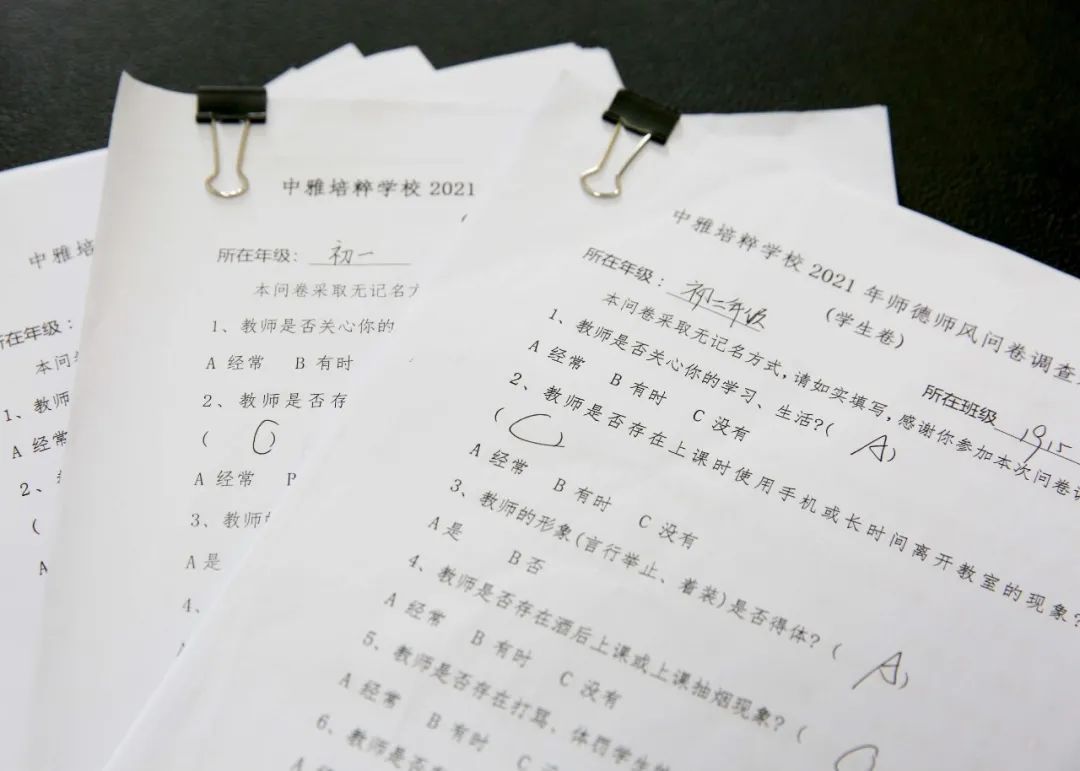 中雅培
所在年级：
本问
1、教师
A 经常
2、
(
A
中雅培粹学校 2021
所在年级： 初一
本问卷采取无记名方
1、教师是否关心你的
A 经常 B 有时
2、教师是否存
( C
A 经常
3、教师的
A 是
4、
中雅培粹学校 2021 年师德师风问卷调查
(学生卷)
所在年级：初二年级 所在班级 1915
本问卷采取无记名方式，请如实填写，感谢你参加本次问卷调
1、教师是否关心你的学习、生活?( A )
A 经常 B 有时 C 没有
2、教师是否存在上课时使用手机或长时间离开教室的现象?
( C )
A 经常 B 有时 C 没有
3、教师的形象(言行举止、着装)是否得体? ( A )
A 是 B 否
4、教师是否存在酒后上课或上课抽烟现象? (
A 经常 B 有时 C 没有
5、教师是否存在打骂、体罚学生
A 经常 B 有时 C
6、教师是否
A 经常